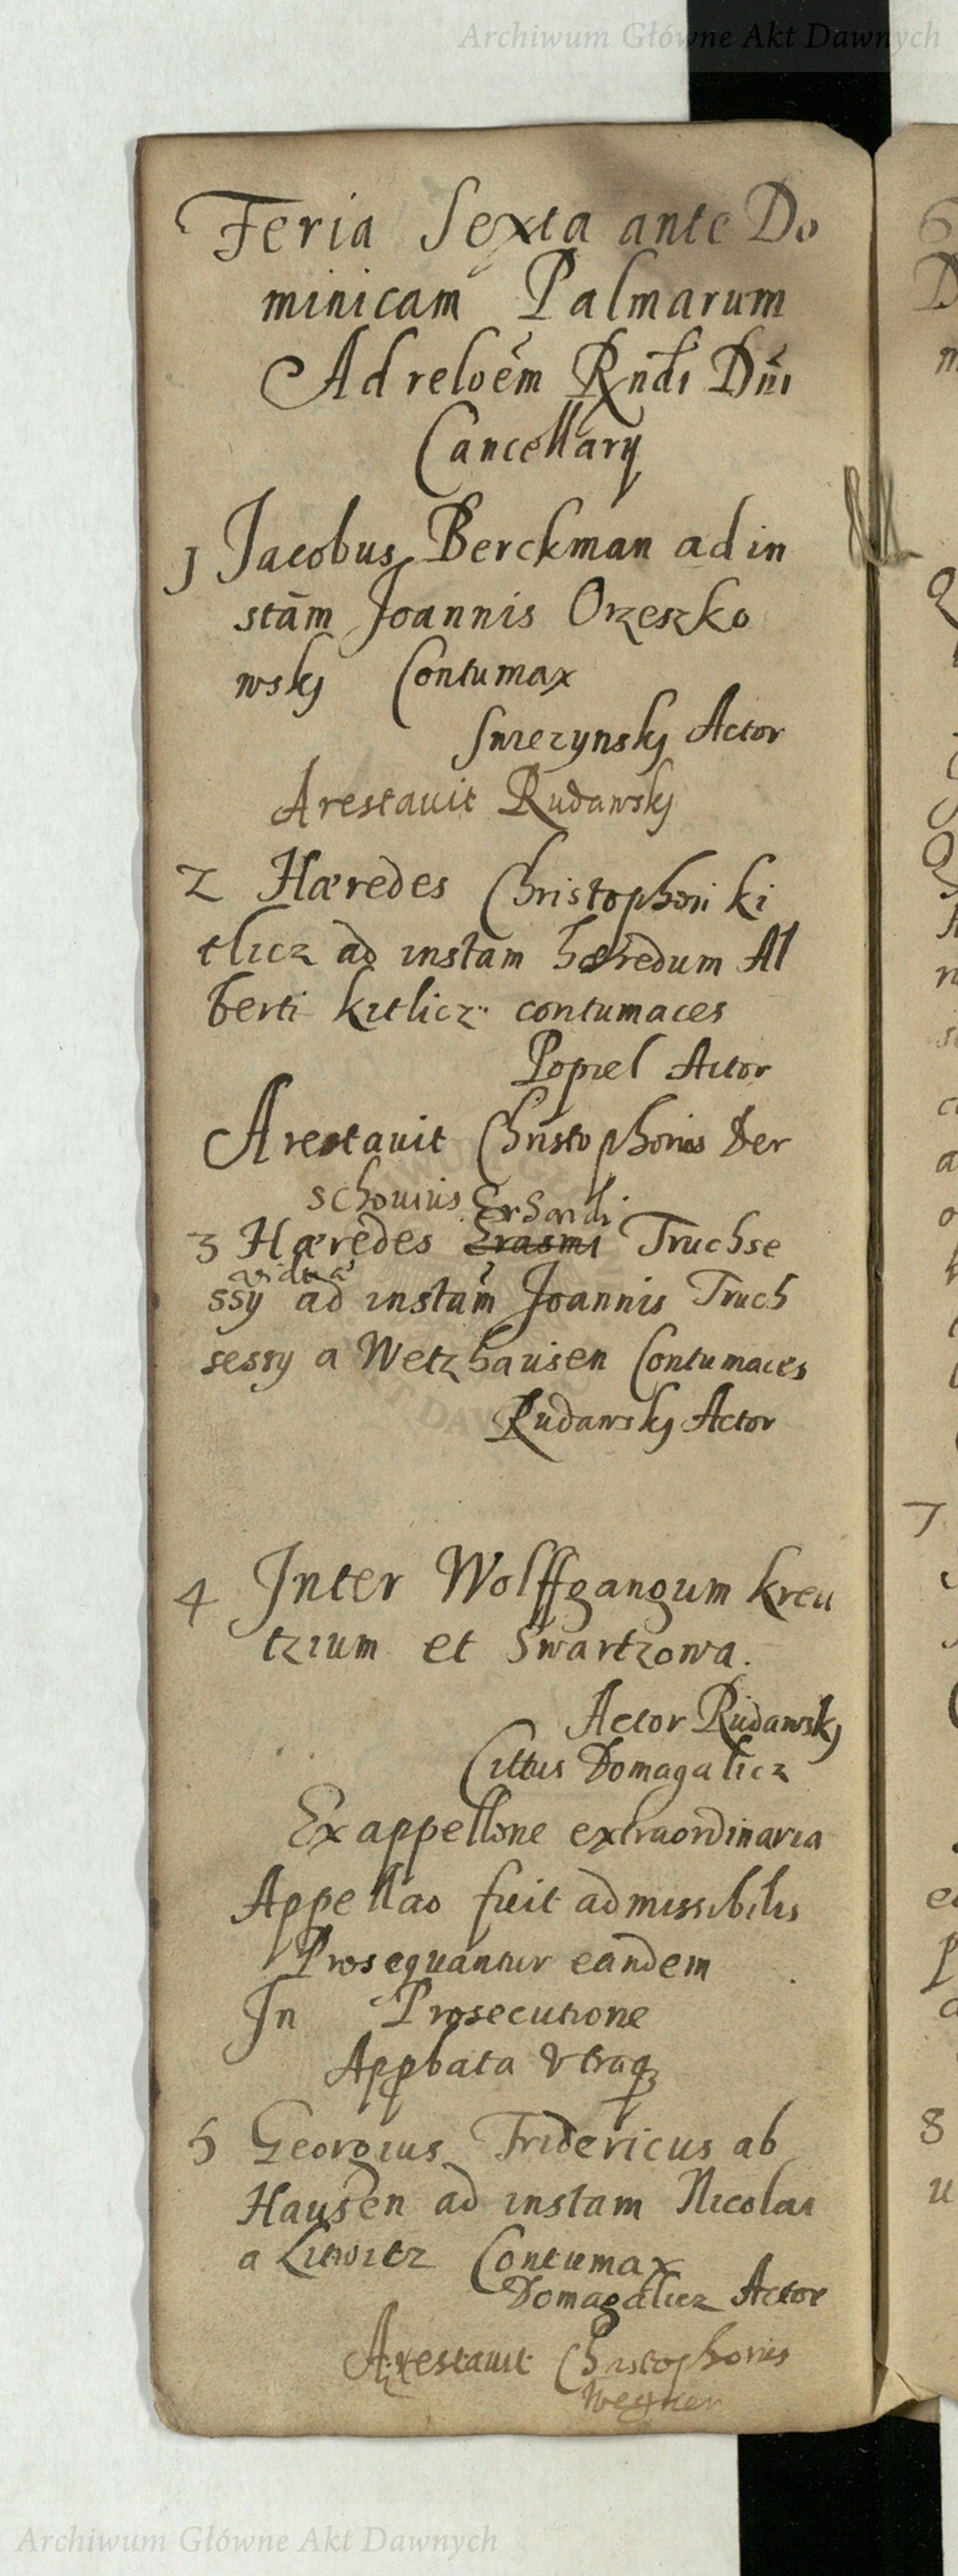 Archiwum Główne Akt Dawnych
Feria Sexta ante Do
minicam Palmarum
Ad reloem Rndi Dni
Cancellarÿ
1 Jacobus Berckman ad in
stãm Joannis Orzeszko
wskj Contumax
Actor
Arestauit Rudawskj
2 Hæredes Christophori ki
tlicz ad instam hæredum Al
berti kitlicz contumaces
Popiel Actor
Arestauit Christophorus Der
schouius Erhardi
3 Hæredes Erasmi Truchse
vidua
ssÿ ad instam Joannis Truch
sessÿ a Wetzhausen Contumaces
Rudawskj Actor
4 Inter Wolffgangum kreu
tzium et Swartzowa.
Actor Rudawskj
Cittus Domagalicz
Ex appellone extraordinaria
Appellao fuit admissibilis
Prosequantur eandem
In Prosecutione
Appbata vtraq
5 Georgius Fridericus ab
Hausen ad instam Nicolai
a Contumax
Domagalicz Actor
Arestauit Christophorus
Wegner
7
8
Archiwum Główne Akt Dawnych